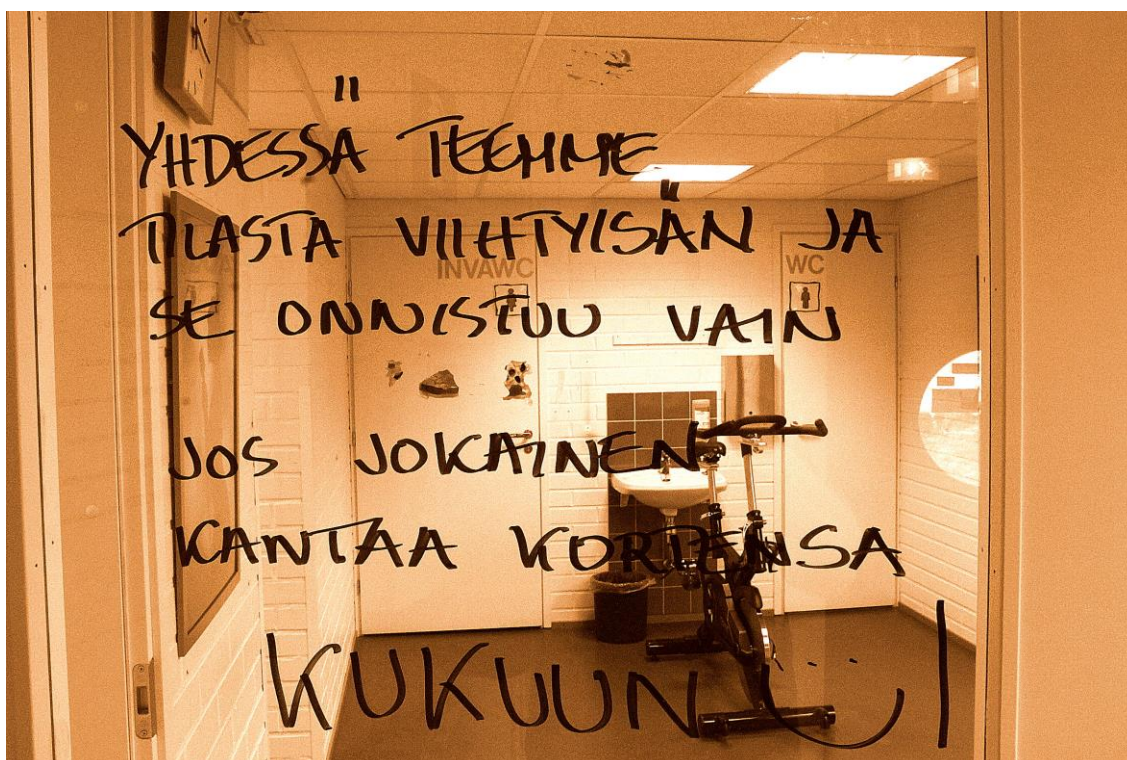 YHDESSÄ TEEMME
TILASTA VIIHTYISÄN JA
INVAWC
WC
SE ONNISTUU VAIN
JOS JOKAINEN
KANTAA KORTENSA
KUKUUN